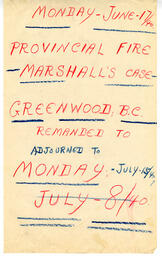 MONDAY-JUNE-17/40
PROVINCIAL FIRE
-MARSHALL'S CASE-
GREENWOOD, B.C.
REMANDED TO
ADJOURNED TO
MONDAY,-JULY-15/40
JULY-8/40